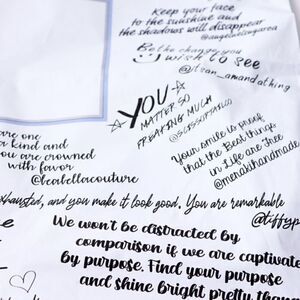 Keep your face
to the sunshine and
the shadows will disappear
Be the change you
wish to see
@itsan_amandathing
YOU
MATTER SO
FREAKING MUCH
are one
a kind and
you are crowned
with favor
@leabellacouture
Your smile is proof
that the Best things
in Life are Free
@merakihandmade
exhausted, and you make it look good. You are remarkable
We won't be distracted by
comparison if we are captivate
by purpose. Find your purpose
and shine bright pretty